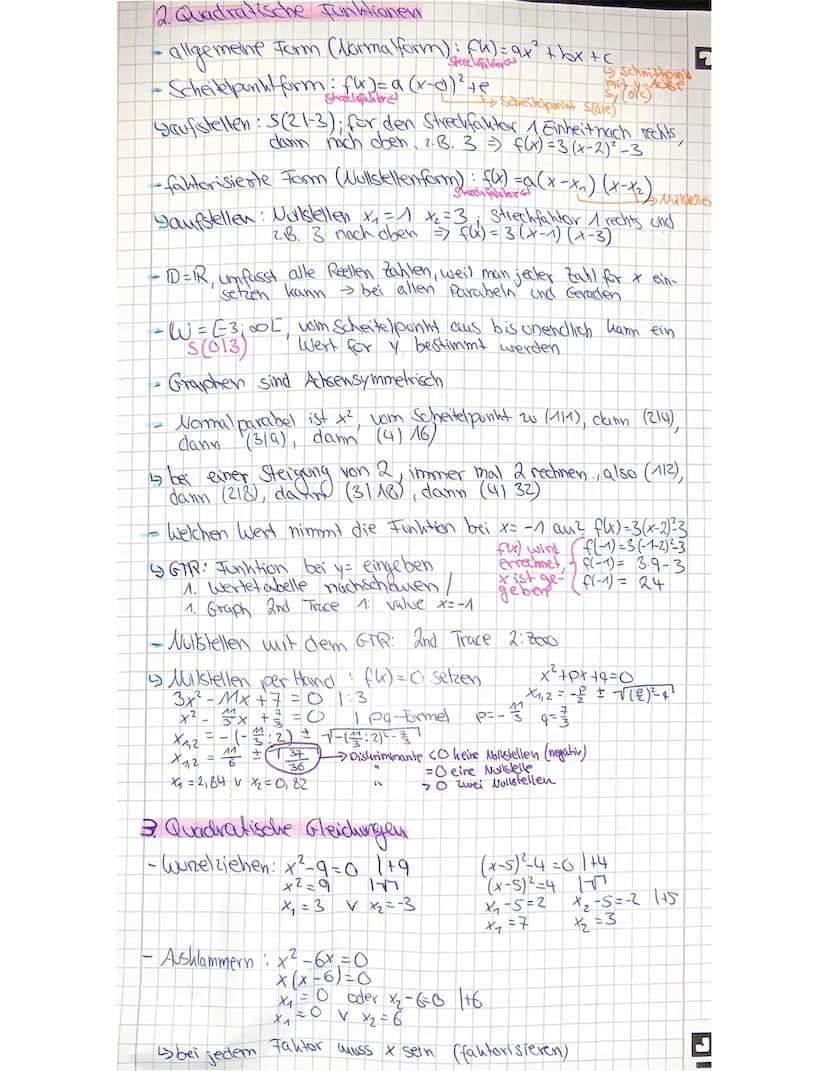 2. Quadratische Funktionen
- allgemeine Form (Normalform): f(x) = ax² + bx + c
Streckfaktor
↳ Schnittpunkt mit y-Achse Sy(0|c)
- Scheitelpunktform: f(x) = a (x-d)² + e
Streckfaktor
↳ Scheitelpunkt S(d|e)
↳ aufstellen: S(2|-3); für den Streckfaktor 1 Einheit nach rechts,
dann nach oben, z.B. 3 ⇒ f(x) = 3(x-2)² - 3
- faktorisierte Form (Nullstellenform): f(x) = a(x-x₁) (x-x₂)
Streckfaktor
→ Nullstellen
↳ aufstellen: Nullstellen x₁=1 x₂=3, Streckfaktor 1 rechts und
z.B. 3 nach oben ⇒ f(x) = 3(x-1) (x-3)
- D=ℝ, umfasst alle Reellen Zahlen, weil man jeder Zahl für x ein-
setzen kann → bei allen Parabeln und Geraden
- W = [-3; ∞[, vom Scheitelpunkt aus bis unendlich kann ein
S(0|3) Wert für y bestimmt werden
- Graphen sind Achsensymmetrisch
- Normalparabel ist x², vom Scheitelpunkt zu (1|1), dann (2|4),
dann (3|9), dann (4|16)
↳ bei einer Steigung von 2, immer mal 2 rechnen, also (1|2),
dann (2|8), dann (3|18), dann (4|32)
- Welchen Wert nimmt die Funktion bei x= -1 an? f(x)=3(x-2)²-3
f(x) wird errechnet, x ist ge-geben
f(-1)=3(-1-2)²-3
f(-1)= 3·9-3
f(-1)= 24
↳ GTR: Funktion bei y= eingeben
1. Wertetabelle nachschauen /
1. Graph 2nd Trace 1: value x=-1
- Nullstellen mit dem GTR: 2nd Trace 2: Zero
↳ Nullstellen per Hand: f(x) = 0 setzen
x²+px+q=0
x₁,₂ = -p/2 ± √(p/2)²-q
3x² - 11x + 7 = 0 |:3
x² - 11/3 x + 7/3 = 0 | pq-Formel p=-11/3 q=7/3
x₁,₂ = -(-11/3 : 2) ± √-(11/3 : 2)² - 7/3
x₁,₂ = 11/6 ± √37/36 → Diskriminante <0 keine Nullstellen (negativ)
" =0 eine Nullstelle
x₁ = 2,84 v x₂ = 0,82 " >0 zwei Nullstellen
3. Quadratische Gleichungen
- Wurzelziehen: x² - 9 = 0 |+9
x² = 9 |√
x₁ = 3 v x₂ = -3
(x-5)² - 4 = 0 |+4
(x-5)² = 4 |√
x₁ - 5 = 2 x₂ - 5 = -2 |+5
x₁ = 7 x₂ = 3
- Ausklammern: x² - 6x = 0
x(x - 6) = 0
x₁ = 0 oder x₂ - 6 = 0 |+6
x₁ = 0 v x₂ = 6
↳ bei jedem Faktor muss x sein (faktorisieren)